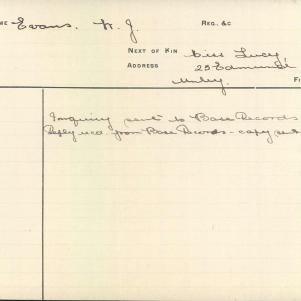 ME Evans. W. J. REG. &C
NEXT OF KIN Miss Lucy
ADDRESS 25 Edmund
Unley. FI
Inquiry sent to Base Records
Reply recd from Base Records - copy sent